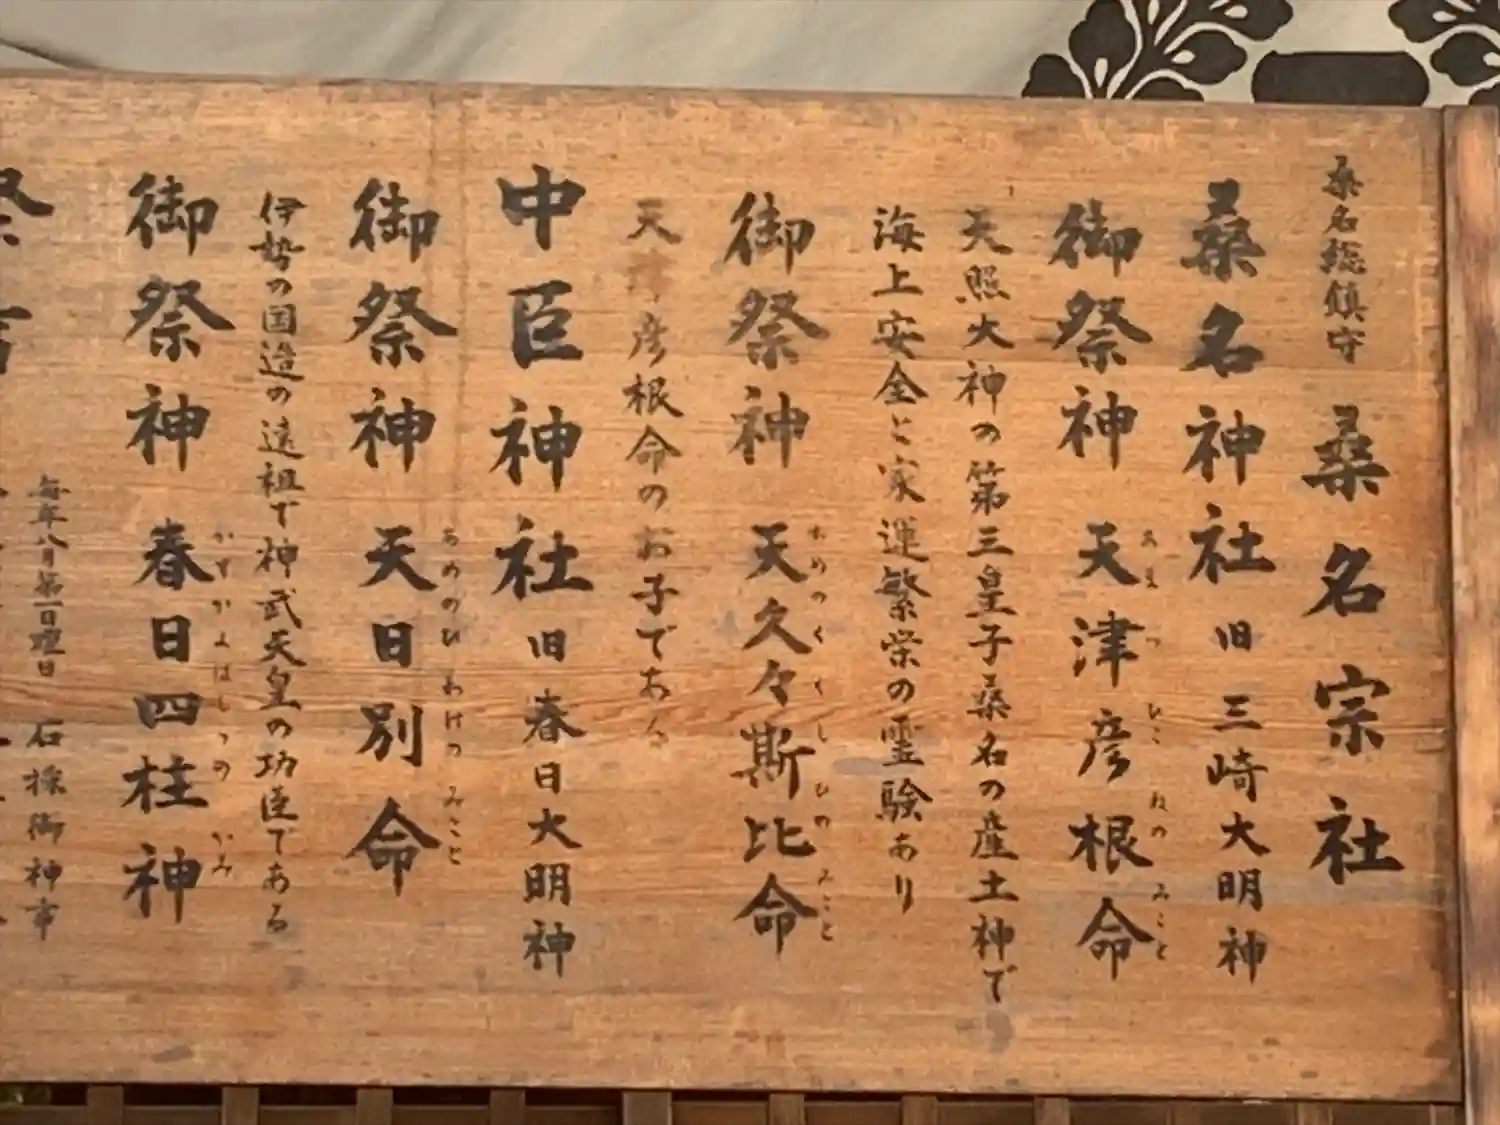 桑名総鎮守
桑名宗社
桑名神社 旧 三崎大明神
御祭神 天津彦根命
あま つ ひこ ねの みこと
天照大神の第三皇子桑名の産土神で
海上安全と家運繁栄の霊験あり
御祭神 天久々斯比命
あめの く く し ひの みこと
天津彦根命のお子である
中臣神社 旧 春日大明神
御祭神 天日別命
あめのひ わけの みこと
伊勢の国造の遠祖で神武天皇の功臣である
御祭神 春日四柱神
かすが よはしらの かみ
毎年八月第一日曜日 石採御神事
祭